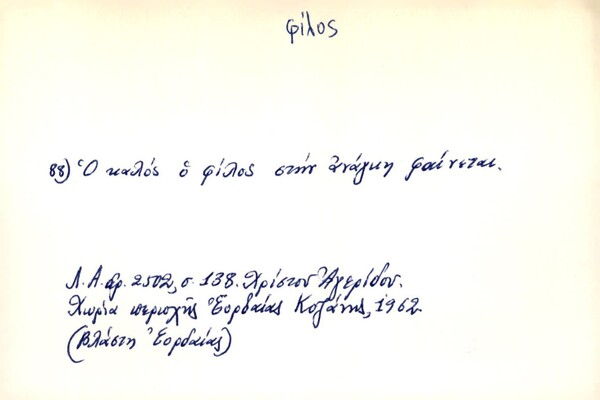 φίλος
88) Ὁ καλός ὁ φίλος στήν ἀνάγκη φαίνεται.
Λ.Α. ἀρ. 2502, σ. 138. Χρίστου Ἀγερίδου.
Χωρία περιοχῆς Ἑορδαίας Κοζάνης, 1962
(Βλάστη Ἑορδαίας)